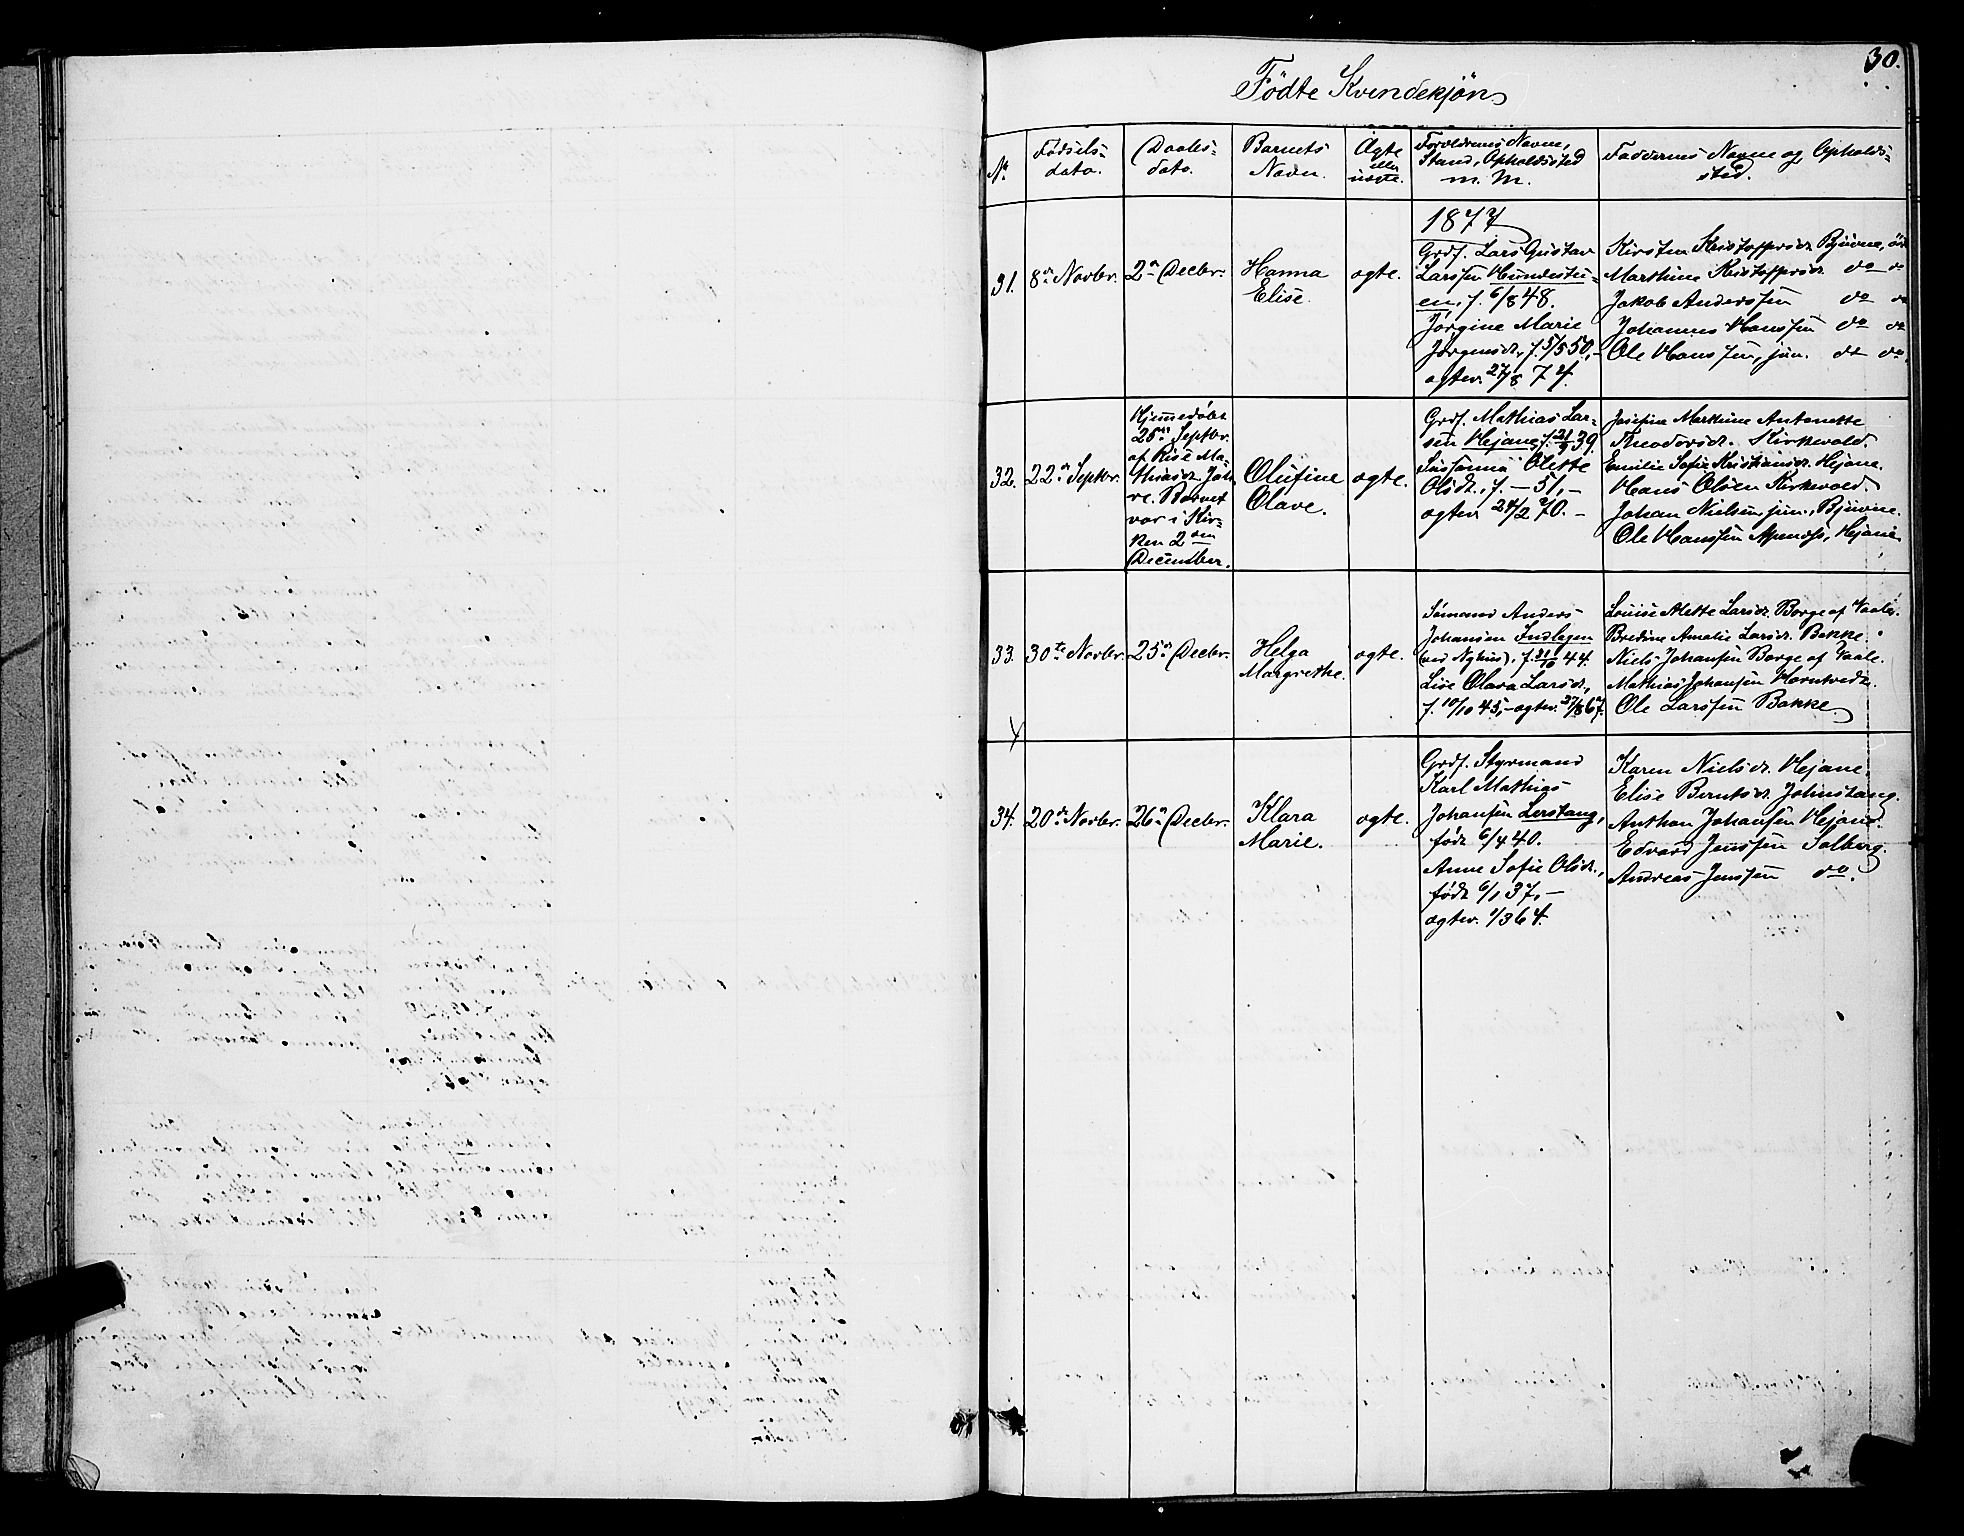 30.
Fødte Kvindekjøn
No.
Fødsels-
dato.
Daabs-
dato.
Barnets
Navn.
Ægte
eller
uægte.
Forældrenes Navne,
Stand, Opholdssted
m. M.
Faddernes Navne og Opholds-
sted.
1877
31.
8de Novbr.
2den Decbr.
Hanna
Elise.
ægte.
Grdf. Lars Gustav
Larssen Hundestu-
en, f. 6/8 48.
Jørgine Marie
Jørgensdr., f. 5/5 50,-
ægtev. 27/8 74.
Kirsten Kristoffersdr. Bjuvne,
Marthine Kristoffersdr. do do
Jakob Anderssen do do
Johannes Hanssen do do
Ole Hanssen, jun. do do
32.
22de Septbr.
Hjemmedøbt
25de Septbr.
af Rise Ma-
thiasdr. Jah-
re. Barnet
var i Kir-
ken 2den
December.
Olufine
Olave.
ægte.
Grdf. Mathias Lar-
sen Hejane, f. 21/9 39.
Susanna Olette
Olsdr., f. - 51,-
ægtev. 24/2 70. -
Josefine Marthine Antonette
Theodorsdr. Kirkevold
Emilie Sofie Kristiansdr. Hejane.
Hans Olsen Kirkevold.
Johan Nielsen, jun., Bjuvne.
Ole Hanssen Hejane
33.
30te Novbr.
25de Decbr.
Helga
Margrethe.
ægte.
Sømand Anders
Johansen Indlegen
(ved Nyhus), f. 31/10 44.
Lise Olava Larsdr.,
f. 10/10 45,- ægtev. 27/8 67.
Louise Alette Larsdr. Borge af Vaale.
Bredine Amalie Larsdr. Bakke.
Niels Johansen Borge af Vaale.
Mathias Johansen Horntvedt.
Ole Larssen Bakke.
34.
20de Novbr.
26de Decbr.
Klara
Marie.
ægte.
Grdf. Styrmand
Karl Mathias
Johansen Lerstang,
født 6/4 40.
Anne Sofie Olsdr.,
født 6/1 37,-
ægtev. 1/3 64.
Karen Nielsdr. Hejane.
Elise Berntsdr. Johnstang.
Anthon Johansen Hejane.
Edvard Jenssen Solberg.
Andreas Jenssen do.